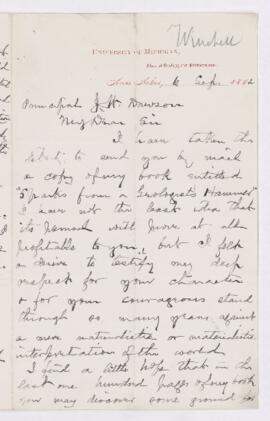 Winchell
UNIVERSITY OF MICHIGAN,
Ann Arbor, 6 Sep. 1882
Principal J. W. Dawson
My Dear Sir
I have taken the
liberty to send you by mail
a copy of my book entitled
"Sparks from a Geologist's Hammer"
I have not the least idea that
its perusal will prove at all
profitable to you, but I felt
a desire to testify my deep
respect for your character
& for your courageous stand
through so many years against
a mere materialistic
interpretation of the world
I find a little hope that in the
last one hundred pages of my book
you may discover some ground for